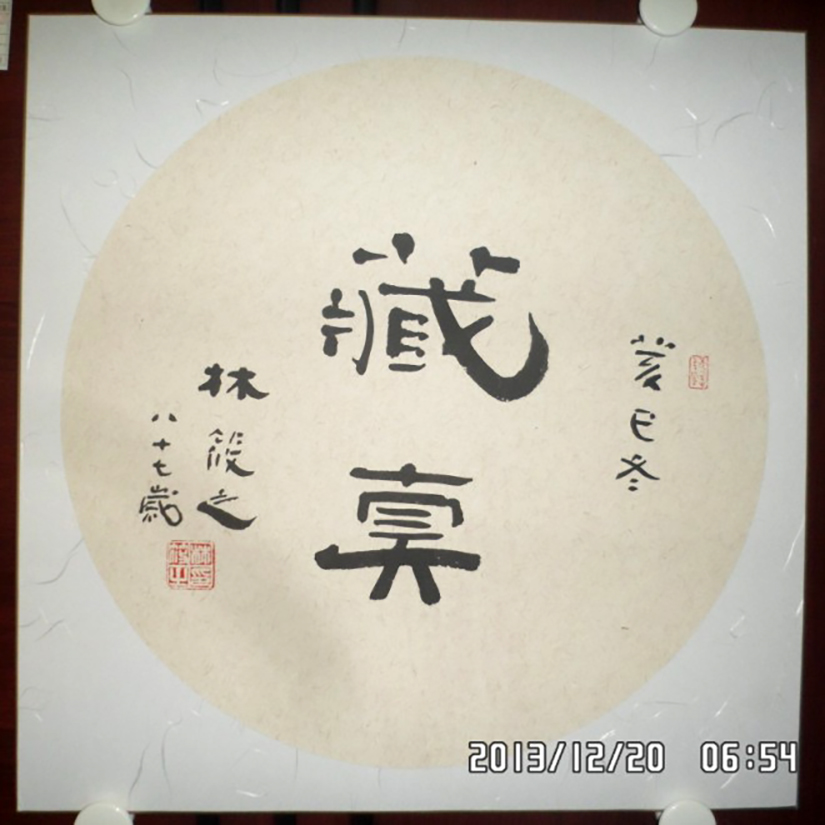 癸巳冬
藏真
林筱之
八十七歲
2013/12/20 06:54